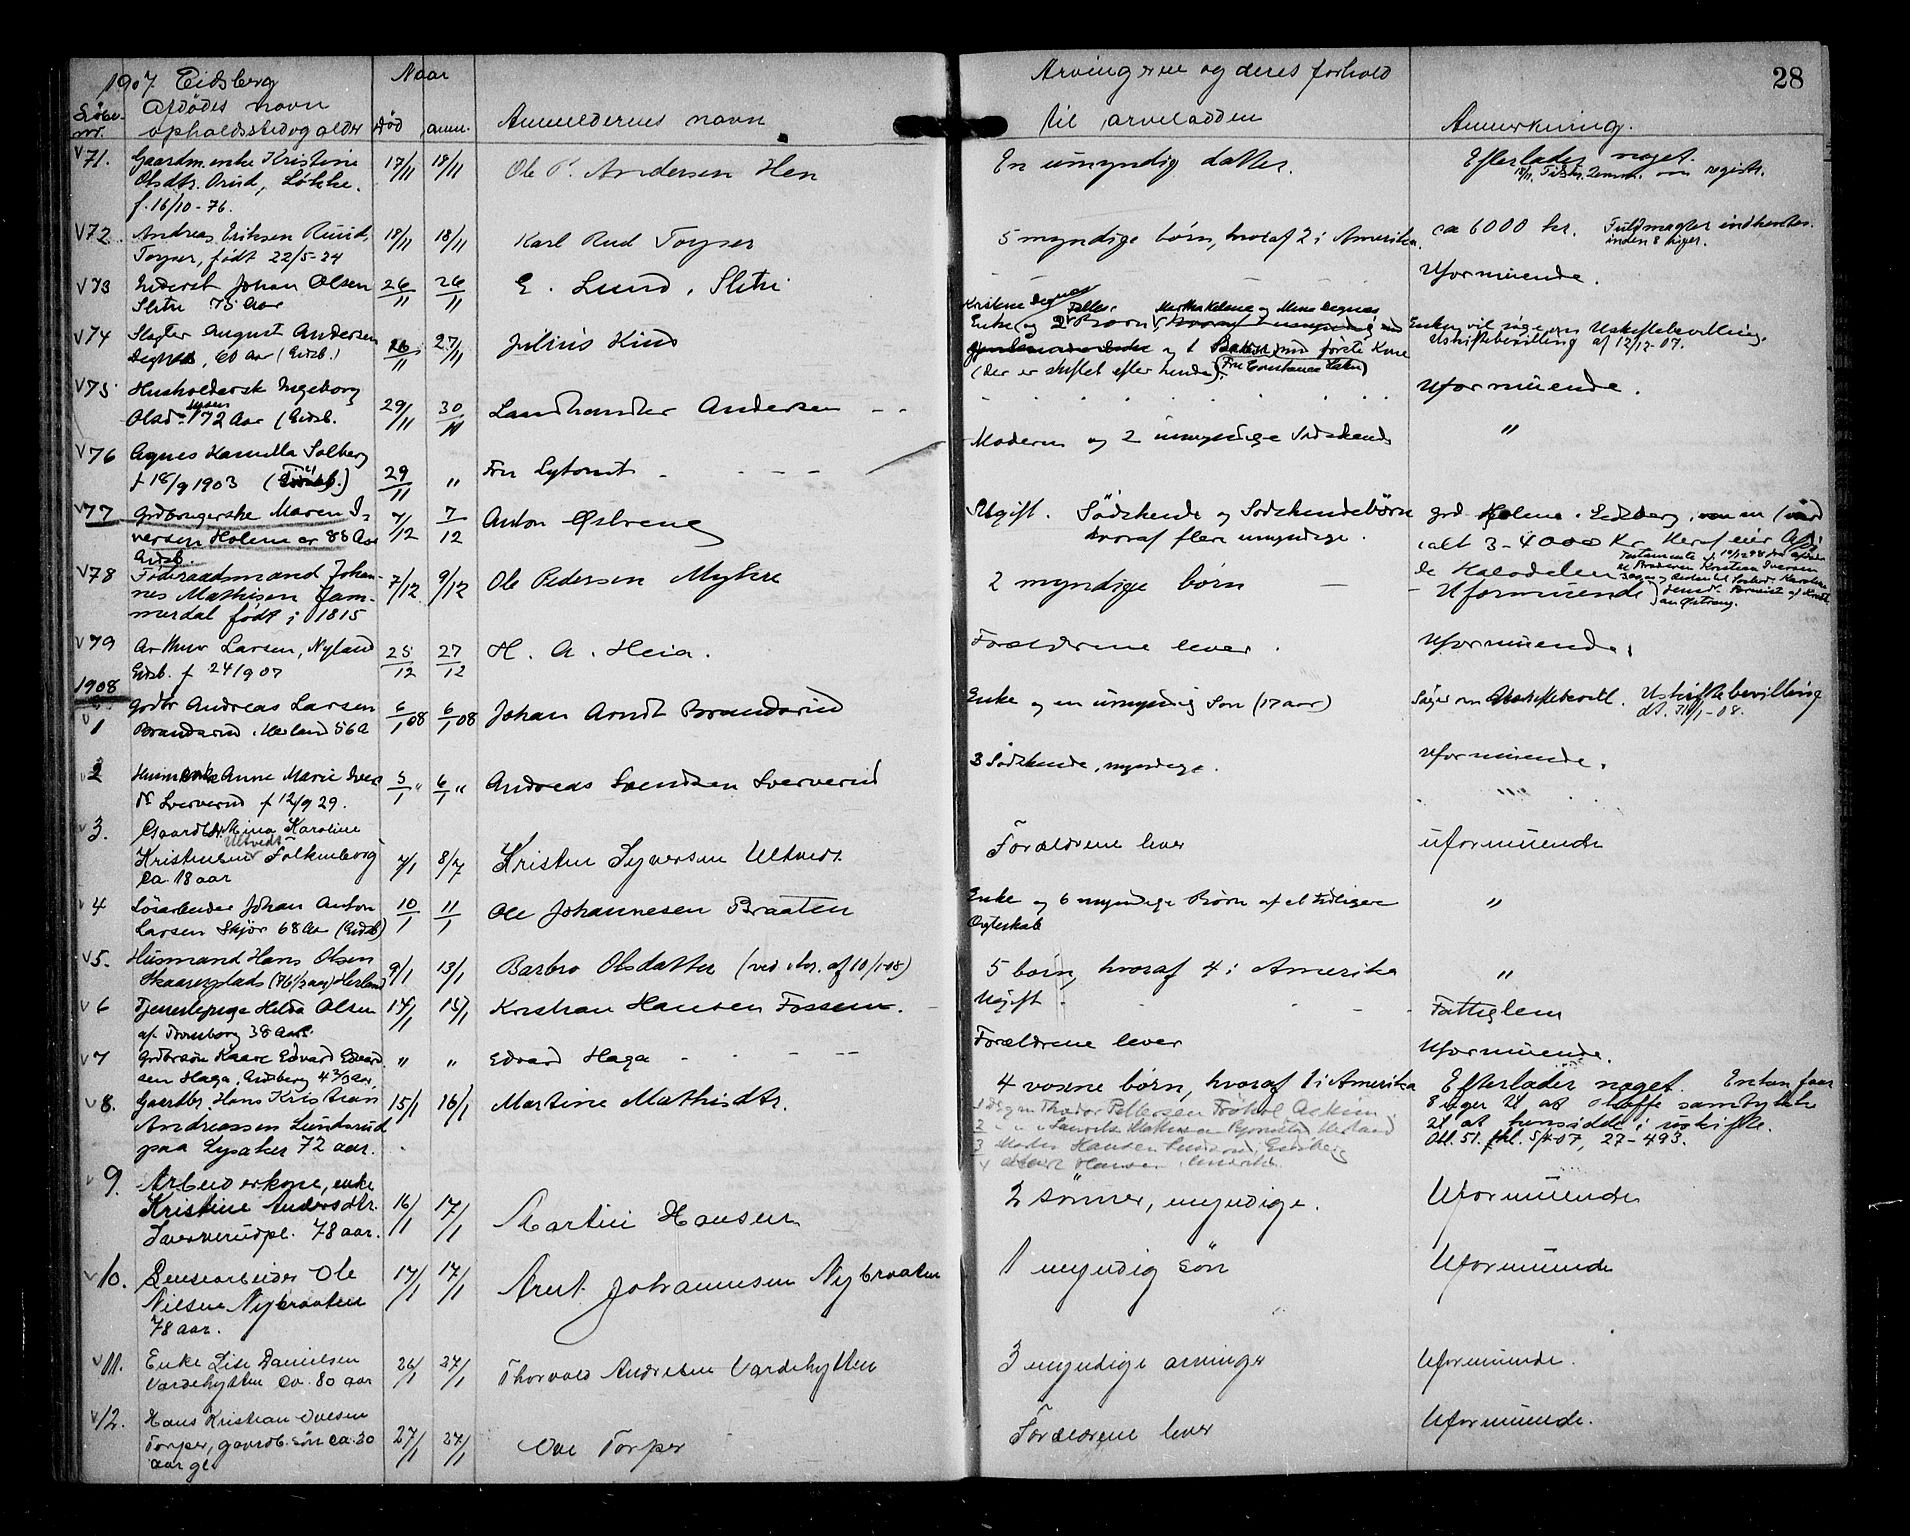 1907 Eidsberg
Naar
Arvingerne og deres forhold
28
Löbe-
nr.
Afdödes navn
opholdssted og alder
död
anm.
Anmelderens navn
til arveladden
Anmerkning.
71.
Gaardm. enke Kristine
Olsdtr. Grud, Løkke.
f. 16/10-76.
17/11
18/11
Ole P. Andersen Hen
En umyndig datter.
Efterlader noget.
om registr.
72.
Andreas Eriksen Ruud,
Torper, født 22/5-24
18/11
18/11
Karl Rud Torper
5 myndige börn, hvoraf 2 i Amerika.
ca 6000 kr.
Fuldmagter indhentes
inden 8 dager.
73
Inderst Johan Olsen
Slitu 75 Aar
26/11
26/11
E. Lund, Slitu
Uformuende.
74
Slagter August Andersen
Degnes, 60 Aar (Eidsb.)
26/11
27/11
Julius Kind
Kristine Degnes
Enke og 2 Børn
Martha Helene og Mina Degnes
og 1 Barn med første Kone
(der er skiftet efter hende).
Enken vil søge om Uskiftebevilling.
Uskiftebevilling af 12/12-07.
75
Husholderske Ingeborg
Olsd. 72 Aar (Eidsb.
29/11
30/11
Landhandler Andersen
Uformuende.
76
Agnes Kamilla Solberg
f 18/9 1903
29/11
"
Fru Sytomt
Moderen og 2 umyndige Sødskende
"
77
Grdbrugerske Maren I-
versen Holene er 88 Aar
Eidsb.
7/12
7/12
Anton Østreng
Ugift. Sødskende og Sødskendebørn
hvoraf flere umyndige.
grd Holene i Eidsberg,
ialt 3-4000 Kr. Heraf eier Afdø-
de Halvdelen
78
Føderaadsmand Johan-
nes Mathisen Gam-
merdal født i 1815
7/12
9/12
Ole Pedersen Myhre
2 myndige börn
Uformuende
79
Arthur Larsen, Nyland
Eidsb. f 24/9 07
25/12
27/12
H. A. Heia.
Forældrene lever.
Uformuende.
1908
1
Grdbr Andreas Larsen
Brandsrud i Herland 56 A
6/1 08
6/1 08
Johan Arndt Brandsrud
Enke og en umyndig Søn (17 aar)
Søger om Uskiftebevill.
Uskiftebevilling
dt. 31/1-08.
2
Husm.enke Anne Marie Ivers
dr Sververud f 12/9 29.
5/1 "
6/1 "
Andreas Svendsen Sververud
3 Sødskende, myndige.
Uformuende.
3.
Gaardbr. Mina Karoline
Ultvedt
Kristensen Falkenborg
ca. 18 aar
7/1
8/7
Kristen Syversen Ultvedt
Forældrene lever
uformuende
4
Løsarbeider Johan Anton
Larsen Skjør 68 Aar (Eidsb)
10/1
11/1
Ole Johannesen Braaten
Enke og 6 myndige Børn af et tidligere
Ægteskab
"
5.
Husmand Hans Olsen
Skaarerplads (76 1/2 aar) Herland
9/1
13/1
Barbro Olsdatter (ved skr. af 10/1-08)
5 barn, hvoraf 4 i Amerika
"
6
Tjenestepige Helda Olsen
af Tronsborg 38 Aar.
14/1
15/1
Kristian Hansen Fossem.
Ugift
Fattiglem
7
Grdbrsøn Kaare Edvard Edvard
sen Haga, Eidsberg 4 3/4 aar,
"
"
Edvard Haga
Forældrene lever
Uformuende.
8.
Gaardbr. Hans Kristian
Andreassen Lundsrud
paa Lysaker 72 aar.
15/1
16/1
Martine Mathisdtr.
4 voxne börn, hvoraf 1 i Amerika
Efterlader noget. Enken faar
8 dager til at skaffe samtykke
til at hensidde i uskifte.
Obl. 51. thl. 5/4-07, 27-493.
9.
Arbeiderkone, enke
Kristine Andersdtr.
Sververudpl. 78 aar.
16/1
17/1
Martin Hansen
2 sönner, myndige.
Uformuende
10.
Lensearbeider Ole
Nilsen Nybraaten
78 aar.
17/1
17/1
Arnt Johannesen Nybraaten
1 myndig sön
Uformuende
11.
Enke Lise Danielsen
Vardehytten ca. 80 aar
26/1
27/1
Thorvald Andresen Vardehytten
3 myndige arvinger
Uformuende.
12.
Hans Kristian Ovesen
Torper, gaardb. sön ca. 20
aar gl.
27/1
27/1
Ove Torper
Forældrene lever
Uformuende.